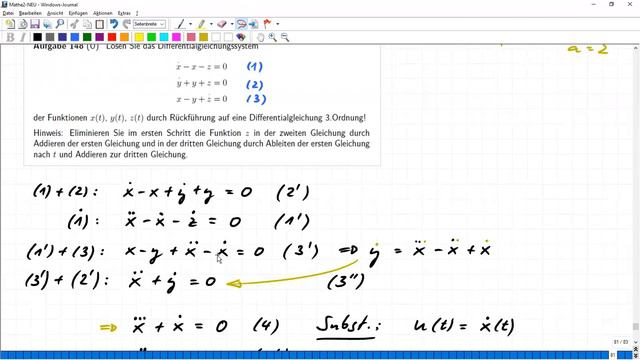 Mathe2-NEU - Windows-Journal
Datei Bearbeiten Ansicht Einfügen Aktionen Extras Hilfe
Seitenbreite
a = 2
Aufgabe 148 (Ü) Lösen Sie das Differentialgleichungssystem
ẋ − x − z = 0 (1)
ẏ + y + z = 0 (2)
x − y + ż = 0 (3)
der Funktionen x(t), y(t), z(t) durch Rückführung auf eine Differentialgleichung 3.Ordnung!
Hinweis: Eliminieren Sie im ersten Schritt die Funktion z in der zweiten Gleichung durch
Addieren der ersten Gleichung und in der dritten Gleichung durch Ableiten der ersten Gleichung
nach t und Addieren zur dritten Gleichung.
(1)+(2): ẋ - x + ẏ + y = 0 (2')
(1̇): ẍ - ẋ - ż = 0 (1')
(1')+(3): x - y + ẍ - ẋ = 0 (3') ⇒ ẏ = x⃛ - ẍ + ẋ
(3')+(2'): ẍ + ẏ = 0 (3'')
⇒ x⃛ + ẋ = 0 (4) Subst.: u(t) = ẋ(t)
81 / 83
81